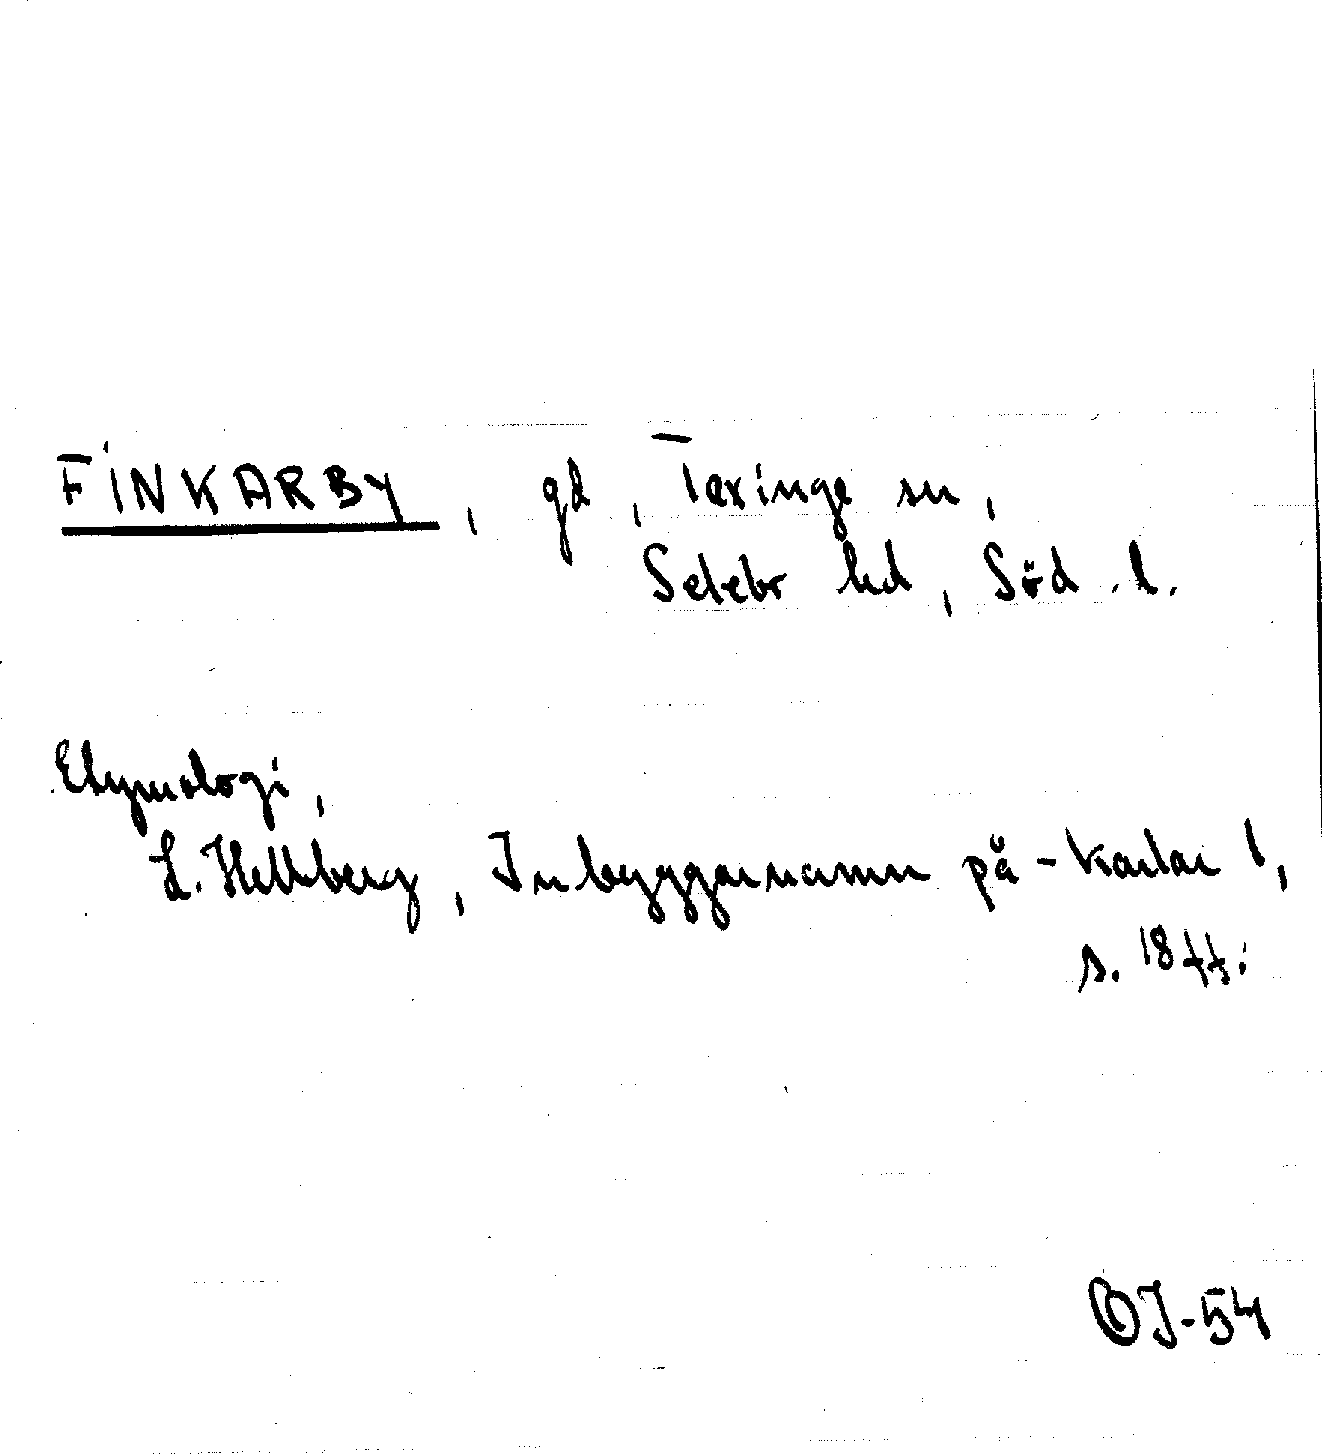 FINKARBY, gd, Taxinge sn,
Selebo hd, Söd. l.
Etymologi,
L. Hellberg, Inbyggarnamn på -karlar 1,
s. 18 ff.
OJ-54